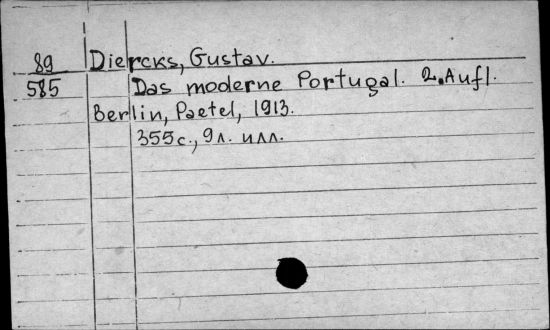 89 Diercks, Gustav.
585 Das moderne Portugal. 2. Aufl.
Berlin, Paetel, 1913.
355 с., 9 л. илл.